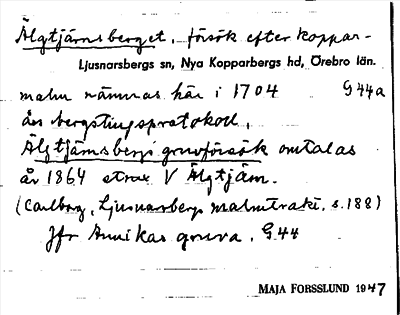 Älgtjärnsberget, försök efter koppar-
Ljusnarsbergs sn, Nya Kopparbergs hd, Örebro län.
malm nämnas här i 1704 G44a
års bergstingsprotokoll,
Älgtjärnsbergs gruvförsök omtalas
år 1864 strax V Älgtjärn.
(Carlborg, Ljusnarsbergs malmtrakt, s.188)
Jfr Annikas gruva. G44
MAJA FORSSLUND 1947